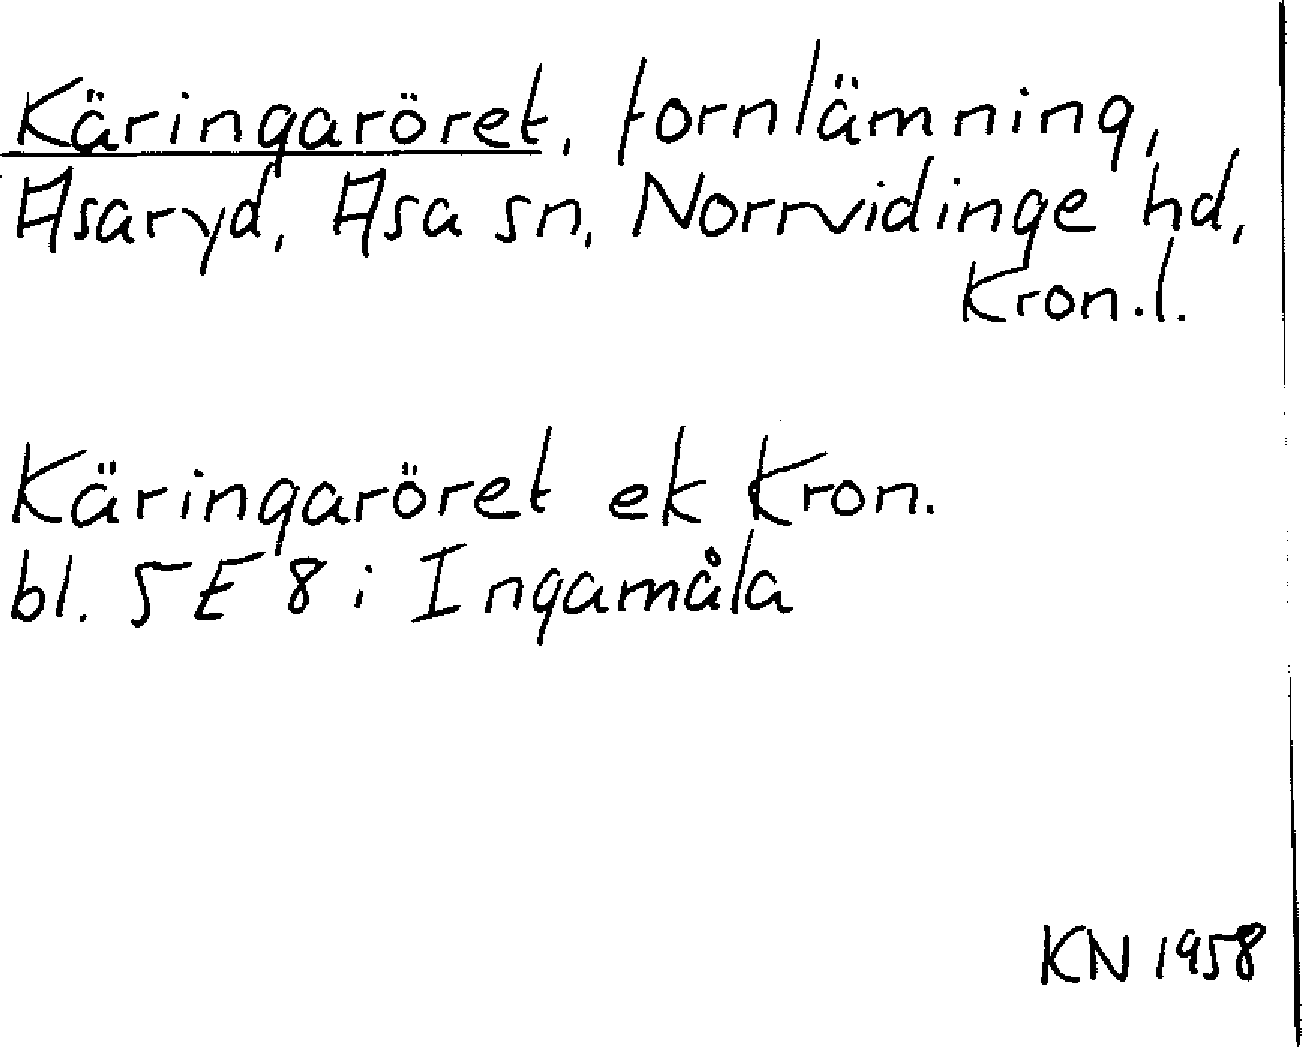 Käringaröret, fornlämning,
Asaryd, Asa sn, Norrvidinge hd,
Kron.l.
Käringaröret ek Kron.
bl. 5E 8i Ingamåla
KN 1958